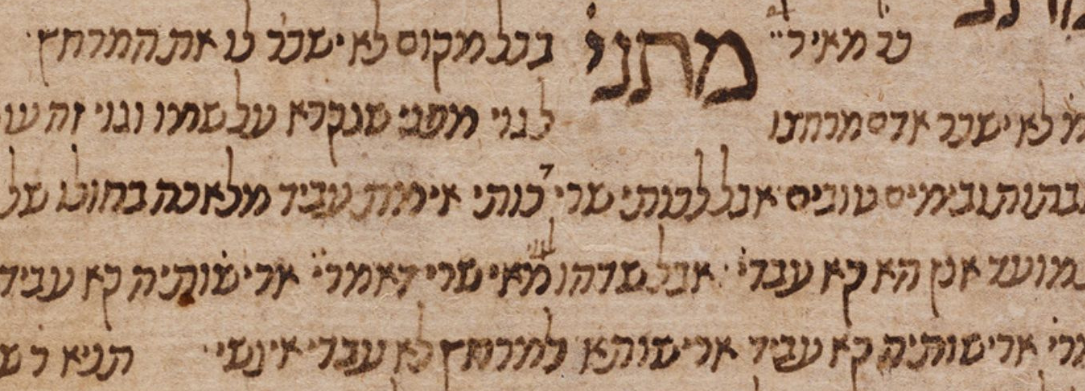 כר מאיר מתני בכל מקום לא ישכר לו את המרחץ
לא ישכר אדם מרחצו לגוי מפני שנקרא על שמו וגוי זה עו
ובימים טובים אבל לכותי שרי כותי אימור עביד מלאכה בחולו של
מועד אנן הא קא עבדי אבל שדהו לגוי מאי שרי דאמרי ארישותיה קא עביד
ארישותיה קא עביד ארישותא למרחץ לא עבדי אינשי תניא ר ש